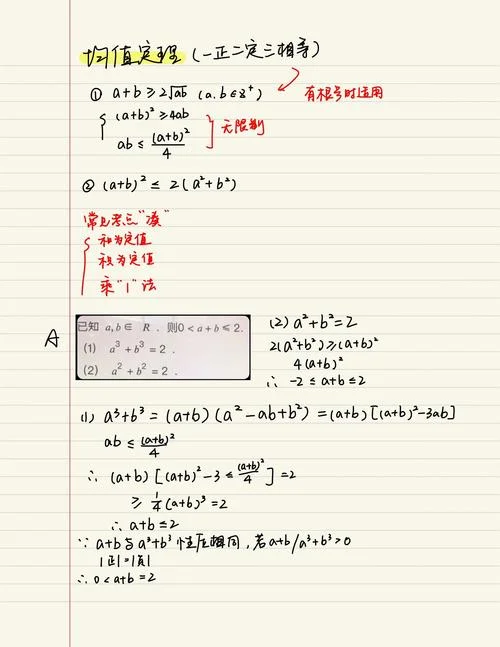 均值定理 (一正二定三相等)
① a+b ≥ 2√ab (a.b∈R⁺) 有根号时适用
(a+b)² ≥ 4ab
ab ≤ (a+b)²/4 无限制
② (a+b)² ≤ 2(a²+b²)
常见考点"凑"
和为定值
积为定值
乘"1"法
A
已知 a,b∈ R . 则0<a+b≤2.
(1) a³+b³=2 .
(2) a²+b²=2 .
(2) a²+b²=2
2(a²+b²)≥(a+b)²
4(a+b)²
∴ -2≤a+b≤2
(1) a³+b³=(a+b)(a²-ab+b²)=(a+b)[(a+b)²-3ab]
ab ≤ (a+b)²/4
∴ (a+b)[(a+b)²-3≤(a+b)²/4]=2
≥ 1/4(a+b)³=2
∴ a+b≤2
∵ a+b与a³+b³ 性相同,若a+b/a³+b³>0
|正|=|负|
∴ 0<a+b=2